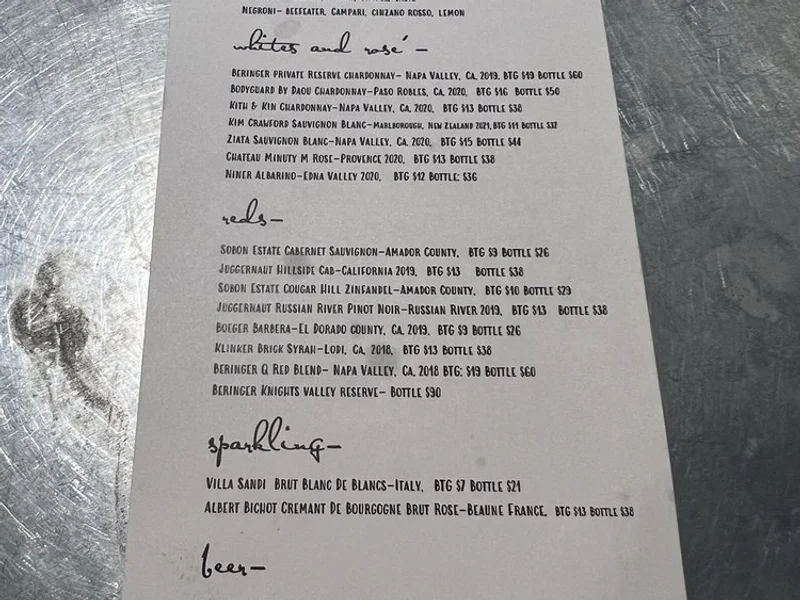 NEGRONI- BEEFEATER, CAMPARI, CINZANO ROSSO, LEMON
whites and rosé -
BERINGER PRIVATE RESERVE CHARDONNAY- NAPA VALLEY, CA. 2019. BTG $19 BOTTLE $60
BODYGUARD BY DAOU CHARDONNAY-PASO ROBLES, CA. 2020. BTG $16 BOTTLE $50
KITH & KIN CHARDONNAY-NAPA VALLEY, CA. 2020. BTG $13 BOTTLE $38
KIM CRAWFORD SAUVIGNON BLANC-MARLBOROUGH, NEW ZEALAND 2021, BTG $11 BOTTLE $32
ZIATA SAUVIGNON BLANC-NAPA VALLEY, CA. 2020. BTG $15 BOTTLE $44
CHATEAU MINUTY M ROSE-PROVENCE 2020. BTG $13 BOTTLE $38
NINER ALBARINO-EDNA VALLEY 2020. BTG $12 BOTTLE: $36
reds-
SOBON ESTATE CABERNET SAUVIGNON-AMADOR COUNTY. BTG $9 BOTTLE $26
JUGGERNAUT HILLSIDE CAB-CALIFORNIA 2019. BTG $13 BOTTLE $38
SOBON ESTATE COUGAR HILL ZINFANDEL-AMADOR COUNTY. BTG $10 BOTTLE $29
JUGGERNAUT RUSSIAN RIVER PINOT NOIR-RUSSIAN RIVER 2019. BTG $13 BOTTLE $38
BOEGER BARBERA-EL DORADO COUNTY, CA. 2019. BTG $9 BOTTLE $26
KLINKER BRICK SYRAH-LODI, CA. 2018. BTG $13 BOTTLE $38
BERINGER Q RED BLEND- NAPA VALLEY, CA. 2018 BTG: $19 BOTTLE $60
BERINGER KNIGHTS VALLEY RESERVE- BOTTLE $90
sparkling-
VILLA SANDI BRUT BLANC DE BLANCS-ITALY. BTG $7 BOTTLE $21
ALBERT BICHOT CREMANT DE BOURGOGNE BRUT ROSE-BEAUNE FRANCE. BTG $13 BOTTLE $38
beer-